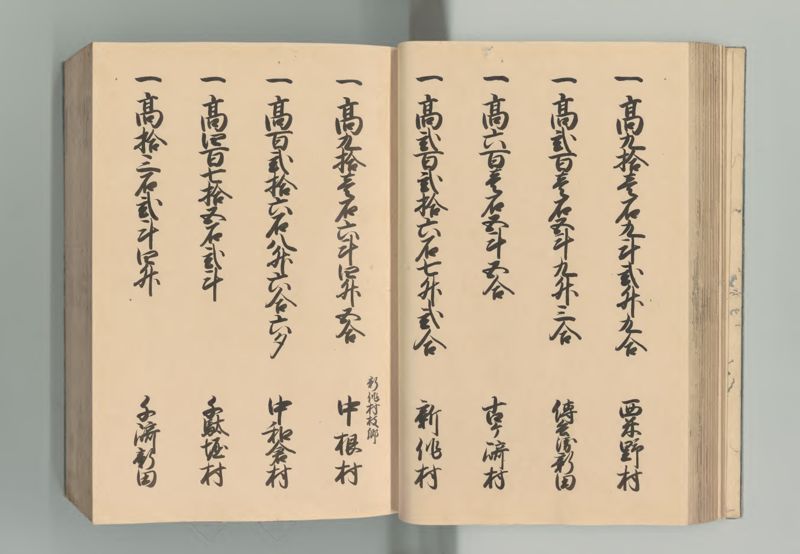 一高九拾壱石九斗弐升九合 野村
一高弐百壱石五斗九升三合 傳兵衛新田
一高六百壱石五斗五合 古ケ崎村
一高弐百弐拾六石七升弐合 新作村
新作村枝郷
一高九拾壱石六斗四升五合 中根村
一高百弐拾六石八升六合六夕 中和倉村
一高四百七拾五石弐斗 千駄堀村
一高拾三石弐斗四升 新田